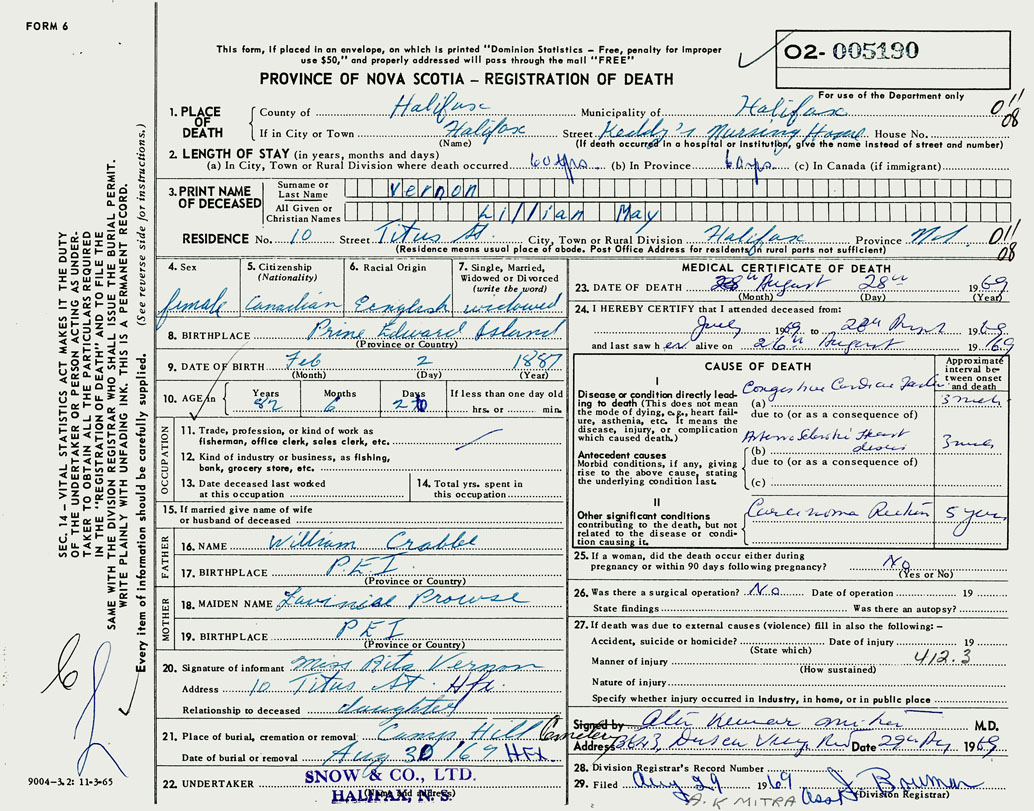 FORM 6
This form, if placed in an envelope, on which is printed "Dominion Statistics – Free, penalty for improper
use $50," and properly addressed will pass through the mail "FREE"
PROVINCE OF NOVA SCOTIA – REGISTRATION OF DEATH
02-005190
For use of the Department only
1. PLACE OF DEATH
County of Halifax Municipality of Halifax 011/08
If in City or Town Halifax Street Keddy's Nursing Home House No.
(Name) (If death occurred in a hospital or institution, give the name instead of street and number)
2. LENGTH OF STAY (in years, months and days)
(a) In City, Town or Rural Division where death occurred 60 yrs (b) In Province 60 yrs (c) In Canada (if immigrant)
3. PRINT NAME OF DECEASED
Surname or Last Name Vernon
All Given or Christian Names Lillian May
RESIDENCE No. 10 Street Titus St. City, Town or Rural Division Halifax Province 011/08
(Residence means usual place of abode. Post Office Address for residents in rural parts not sufficient)
4. Sex female
5. Citizenship (Nationality) Canadian
6. Racial Origin English
7. Single, Married, Widowed or Divorced (write the word) widowed
8. BIRTHPLACE Prine Edward Island
(Province or Country)
9. DATE OF BIRTH Feb 2 1887
(Month) (Day) (Year)
10. AGE in Years 82 Months 6 Days If less than one day old hrs. or min.
OCCUPATION
11. Trade, profession or kind of work as fisherman, office clerk, sales clerk, etc.
12. Kind of industry or business, as fishing, bank, grocery store, etc.
13. Date deceased last worked at this occupation
14. Total yrs. spent in this occupation
15. If married give name of wife or husband of deceased
FATHER
16. NAME William Crabbe
17. BIRTHPLACE P.E.I
(Province or Country)
MOTHER
18. MAIDEN NAME Lavinia Prowse
19. BIRTHPLACE PEI
(Province or Country)
20. Signature of informant Miss Rita Vernon
Address 10 Titus St. Hfx.
Relationship to deceased daughter
21. Place of burial, cremation or removal Camp Hill Cemetery
Date of burial or removal Aug 30/69 HFX
22. UNDERTAKER SNOW & CO., LTD.
HALIFAX, N. S.
MEDICAL CERTIFICATE OF DEATH
23. DATE OF DEATH August 28th 1969
(Month) (Day) (Year)
24. I HEREBY CERTIFY that I attended deceased from:
July 1969 to 28th 1969
and last saw her alive on 26th August 1969
CAUSE OF DEATH
Approximate interval between onset and death
I
Disease or condition directly leading to death (This does not mean the mode of dying, e.g., heart failure, asthenia, etc. It means the disease, injury, or complication which caused death.)
(a) Congestive Cardiac
due to (or as a consequence of)
Antecedent causes
Morbid conditions, if any, giving rise to the above cause, stating the underlying condition last.
(b) Heart
due to (or as a consequence of)
(c)
II
Other significant conditions contributing to the death, but not related to the disease or condition causing it.
Carcinoma Rectum 5 years
25. If a woman, did the death occur either during pregnancy or within 90 days following pregnancy? No
(Yes or No)
26. Was there a surgical operation? No Date of operation 19
State findings Was there an autopsy?
27. If death was due to external causes (violence) fill in also the following: –
Accident, suicide or homicide? Date of injury 19
(State which)
Manner of injury 412.3
(How sustained)
Nature of injury
Specify whether injury occurred in Industry, in home, or in public place
Signed by M.D.
Address Date 1969
28. Division Registrar's Record Number
29. Filed Aug 29 1969 J. Bowman
(Division Registrar)
A. K MITRA Asst
SEC. 14 – VITAL STATISTICS ACT MAKES IT THE DUTY
OF THE UNDERTAKER OR PERSON ACTING AS UNDER-
TAKER TO OBTAIN ALL THE PARTICULARS REQUIRED
IN THE "REGISTRATION OF DEATH" AND TO FILE THE
SAME WITH THE DIVISION REGISTRAR WHO SHALL ISSUE THE BURIAL PERMIT.
WRITE PLAINLY WITH UNFADING INK. THIS IS A PERMANENT RECORD.
Every item of information should be carefully supplied. (See reverse side for instructions.)
9004-3.2: 11-3-65